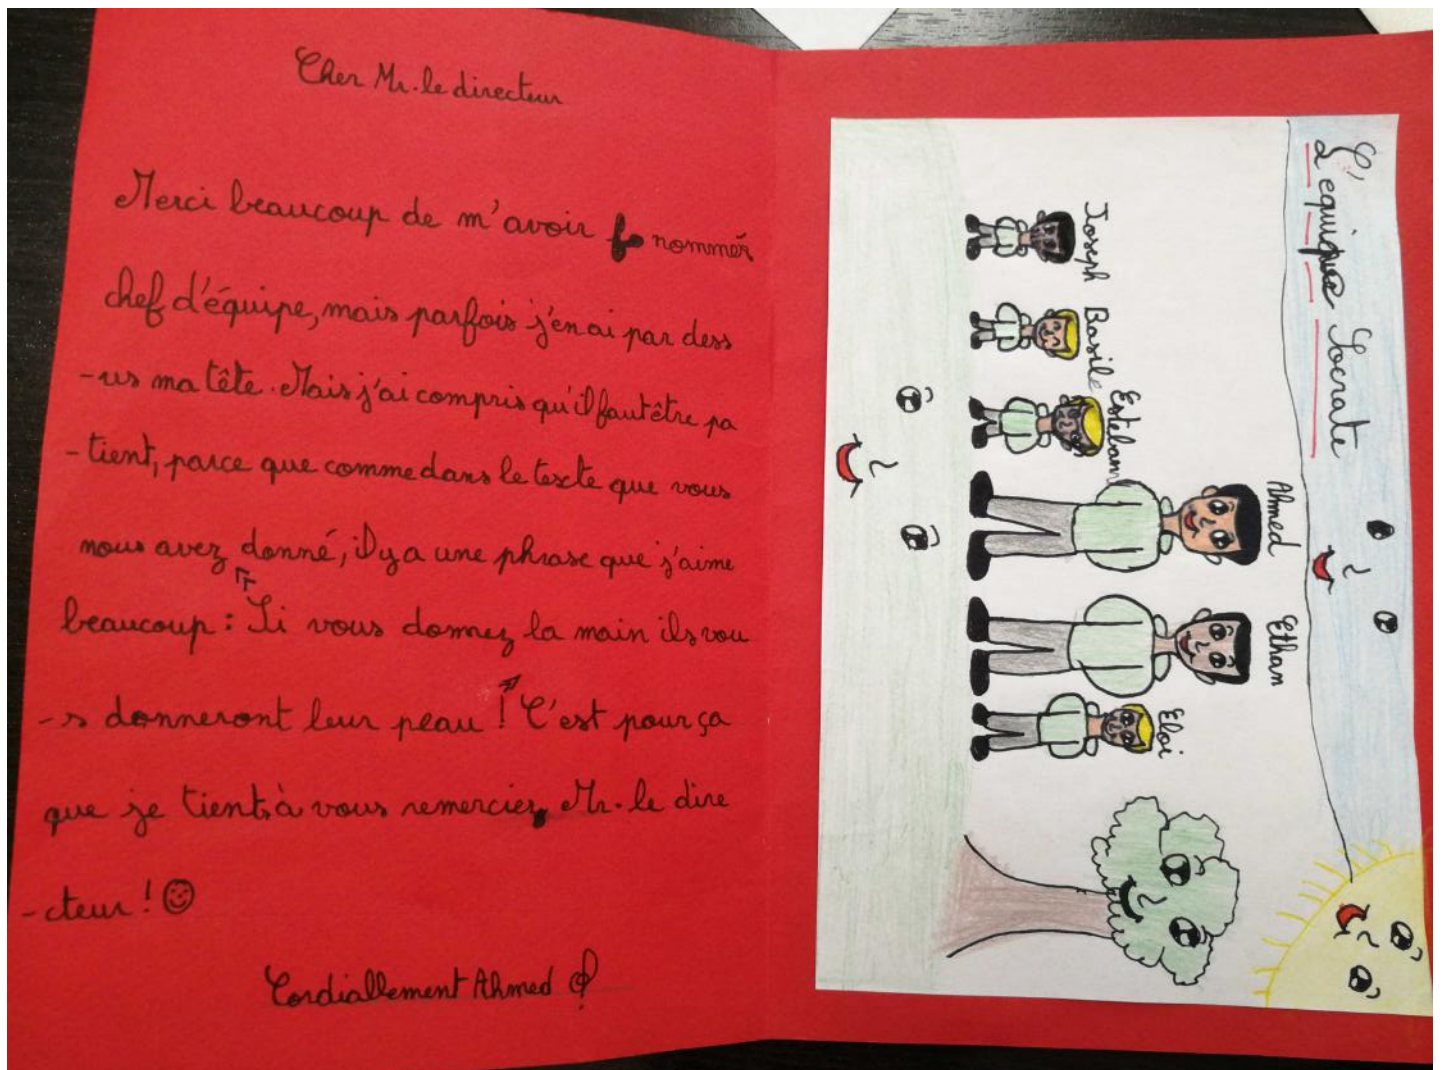 Cher Mr. le directeur
Merci beaucoup de m'avoir nommés
chef d'équipe, mais parfois j'en ai par dess
-us ma tête. Mais j'ai compris qu'il faut être pa
-tient, parce que comme dans le texte que vous
nous avez donné, il y a une phrase que j'aime
beaucoup : "Si vous donnez la main ils vou
-s donneront leur peau !" C'est pour ça
que je tient à vous remercier, Mr. le dire
-cteur ! ☺
Cordiallement Ahmed
L'equipe Socrate
Joseph
Basile
Esteban
Ahmed
Ethan
Eloi